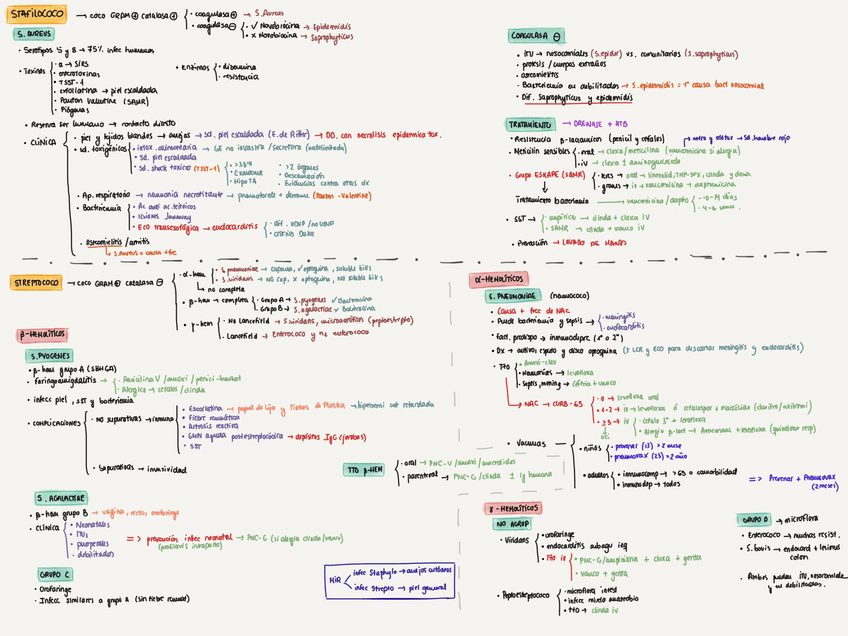 STAFILOCOCO → coco GRAM ⊕ catalasa ⊕
· coagulasa ⊕ → S. Aureus
· coagulasa ⊖
✓ Novobiocina → Epidermidis
× Novobiocina → Saprophyticus
S. AUREUS
• Serotipos 5 y 8 → 75% infec humanas
• Toxinas
• α → SIRS
• enterotoxinas
• TSST-1
• exfoliatina → piel escaldada
• Panton Valentine (SAMR)
• Piógenas
• Enzimas
• resistencia
• Reserva ser humano → contacto directo
• CLÍNICA
• piel y tejidos blandos → anejos → sd. piel escaldada (E. de Ritter) → DD. con necrolisis epidermica tox.
• sd. toxigénicas
• intox. alimentaria → GE no invasiva / secretora (autolimitada)
• sd. piel escaldada
• sd. shock toxico (TSST-1)
• >38'9
• Exantema
• HipoTA
• >2 órganos
• Descamación
• Evidencias contra otras dx
• Ap. respiratorio → neumonía necrotizante → pneumatocele + derrame (Panton-Valentine)
• Bacteriemia
• Lesiones Janeway
• ECO transesofágica → endocarditis
• criterios Duke
• Osteomielitis / artritis
↳ S. aureus = causa + frec
COAGULASA ⊖
• ITU → nosocomiales (S. epider) vs. comunitarios (S. saprophyticus)
• protesis / cuerpos extraños
• osteomielitis
• Bacteriemia en debilitados → S. epidermidis = 1ª causa bact nosocomial
• Dif. saprophyticus y epidermidis
TRATAMIENTO → DRENAJE + ATB
• Resistencia β-lactamicos (penicil y cefalos)
• Meticilin sensibles
• oral → cloxa/meticilina (vancomicina si alergia)
• iv → cloxa ± aminoglucosido
• Grupo ESKAPE (SAMR)
• leves → oral → linezolid, TMP-SMX, clinda y doxa
• graves → iv → vancomicina + daptomicina
Tratamiento bacteriemia → vancomicina / dapto
- 10-14 días
- 4-6 sema.
• SST
• empírico → clinda + cloxa IV
• SAMR → clinda + vanco IV
• Prevención → LAVADO DE MANOS
STREPTOCOCO → coco GRAM ⊕ catalasa ⊖
• α-hem
• S. pneumoniae → capsula, ✓optoquina, soluble bilis
• S. viridans → NO cap, × optoquina, NO soluble bilis
↳ no completa
• β-hem → completa
• Grupo A → S. pyogenes ✓ Bacitracina
Grupo B → S. agalactiae × Bacitracina
• γ-hem
• No Lancefield → S. viridans, microaerófilos (peptostrepto)
• Lancefield → Enterococo y no enterococo
β-HEMOLÍTICOS
S. PYOGENES
• β-hem grupo A (SBHGA)
• Faringoamigdalitis
• Penicilina V / amoxi / penici-benzat
• Alergico → cefalos / clinda
• infecc piel, SST y bacteriemia
• COMPLICACIONES
• NO supurativas → inmune
• Escarlatina → papel de lija y líneas de Pastia → hipersensi cut retardada
• Fiebre reumática
• Artrosis reactiva
• GMN aguda postestreptocócica → depósitos IgG (jorobas)
• SST
• Supurativas → invasividad
TTO β-HEM
• oral → PNC-V / amoxi / macrolidos
• parenteral → PNC-G / clinda ± Ig humana
S. AGALACTIAE
• β-hem grupo B → vagina, recto, orofaringe
• CLÍNICA
• Neonatales
• ITUs
• puerperales
• debilitados
=> prevención infec neonatal → PNC-G (si alergia clinda/vanco)
(profilaxis intraparto)
GRUPO C
• Orofaringe
• Infecc similares a grupo A (sin fiebre reumat)
MIR
infec Staphylo → anejos cutáneos
infec Strepto → piel general
α-HEMOLÍTICOS
S. PNEUMONIAE (neumococo)
• Causa + frec de NAC
• Puede bacteriemia y sepsis
- meningitis
- endocarditis
• fact. predispo → inmunodepre (1º o 2º)
• Dx → cultivo, esputo y disco optoquina (± LCR y ECO para descartar meningitis y endocarditis)
• TTO
• Amoxi-clav
• Neumonías → levofloxa
• Septis, mening → Ceftria + vanco
NAC → CURB-65
• 0 → levofloxa oral
• 1-2 → iv → levofloxa ó cefalospor + macrólido (claritro/azitromi)
• ≥3 → iv
• cefalo 3ª + levofloxa
• Alergia β-lact → Aztreonam + levofloxa (quinolona resp)
• Vacunas
• niños
• prevenar (13) >2 mese
• pneumovax (23) >2 año
• adultos
• inmunocomp → >65 o comorbilidad
• inmunodep → todos
=> Prevenar + Pneumovax (2 meses)
γ-HEMOLÍTICOS
NO AGRUP
• Viridans
• orofaringe
• endocarditis subagu izq
• TTO iv
• PNC-G/ampicilina + cloxa + genta
• vanco + genta
• Peptoestreptococo
• microflora intest
• infecc mixta anaerobia
• TTO → clinda iv
GRUPO D → microflora
• Enterococo → muchas resist.
• S. bovis → endocard + lesiones colon
• Ambos pueden ITU, nosocomiales y en debilitados.